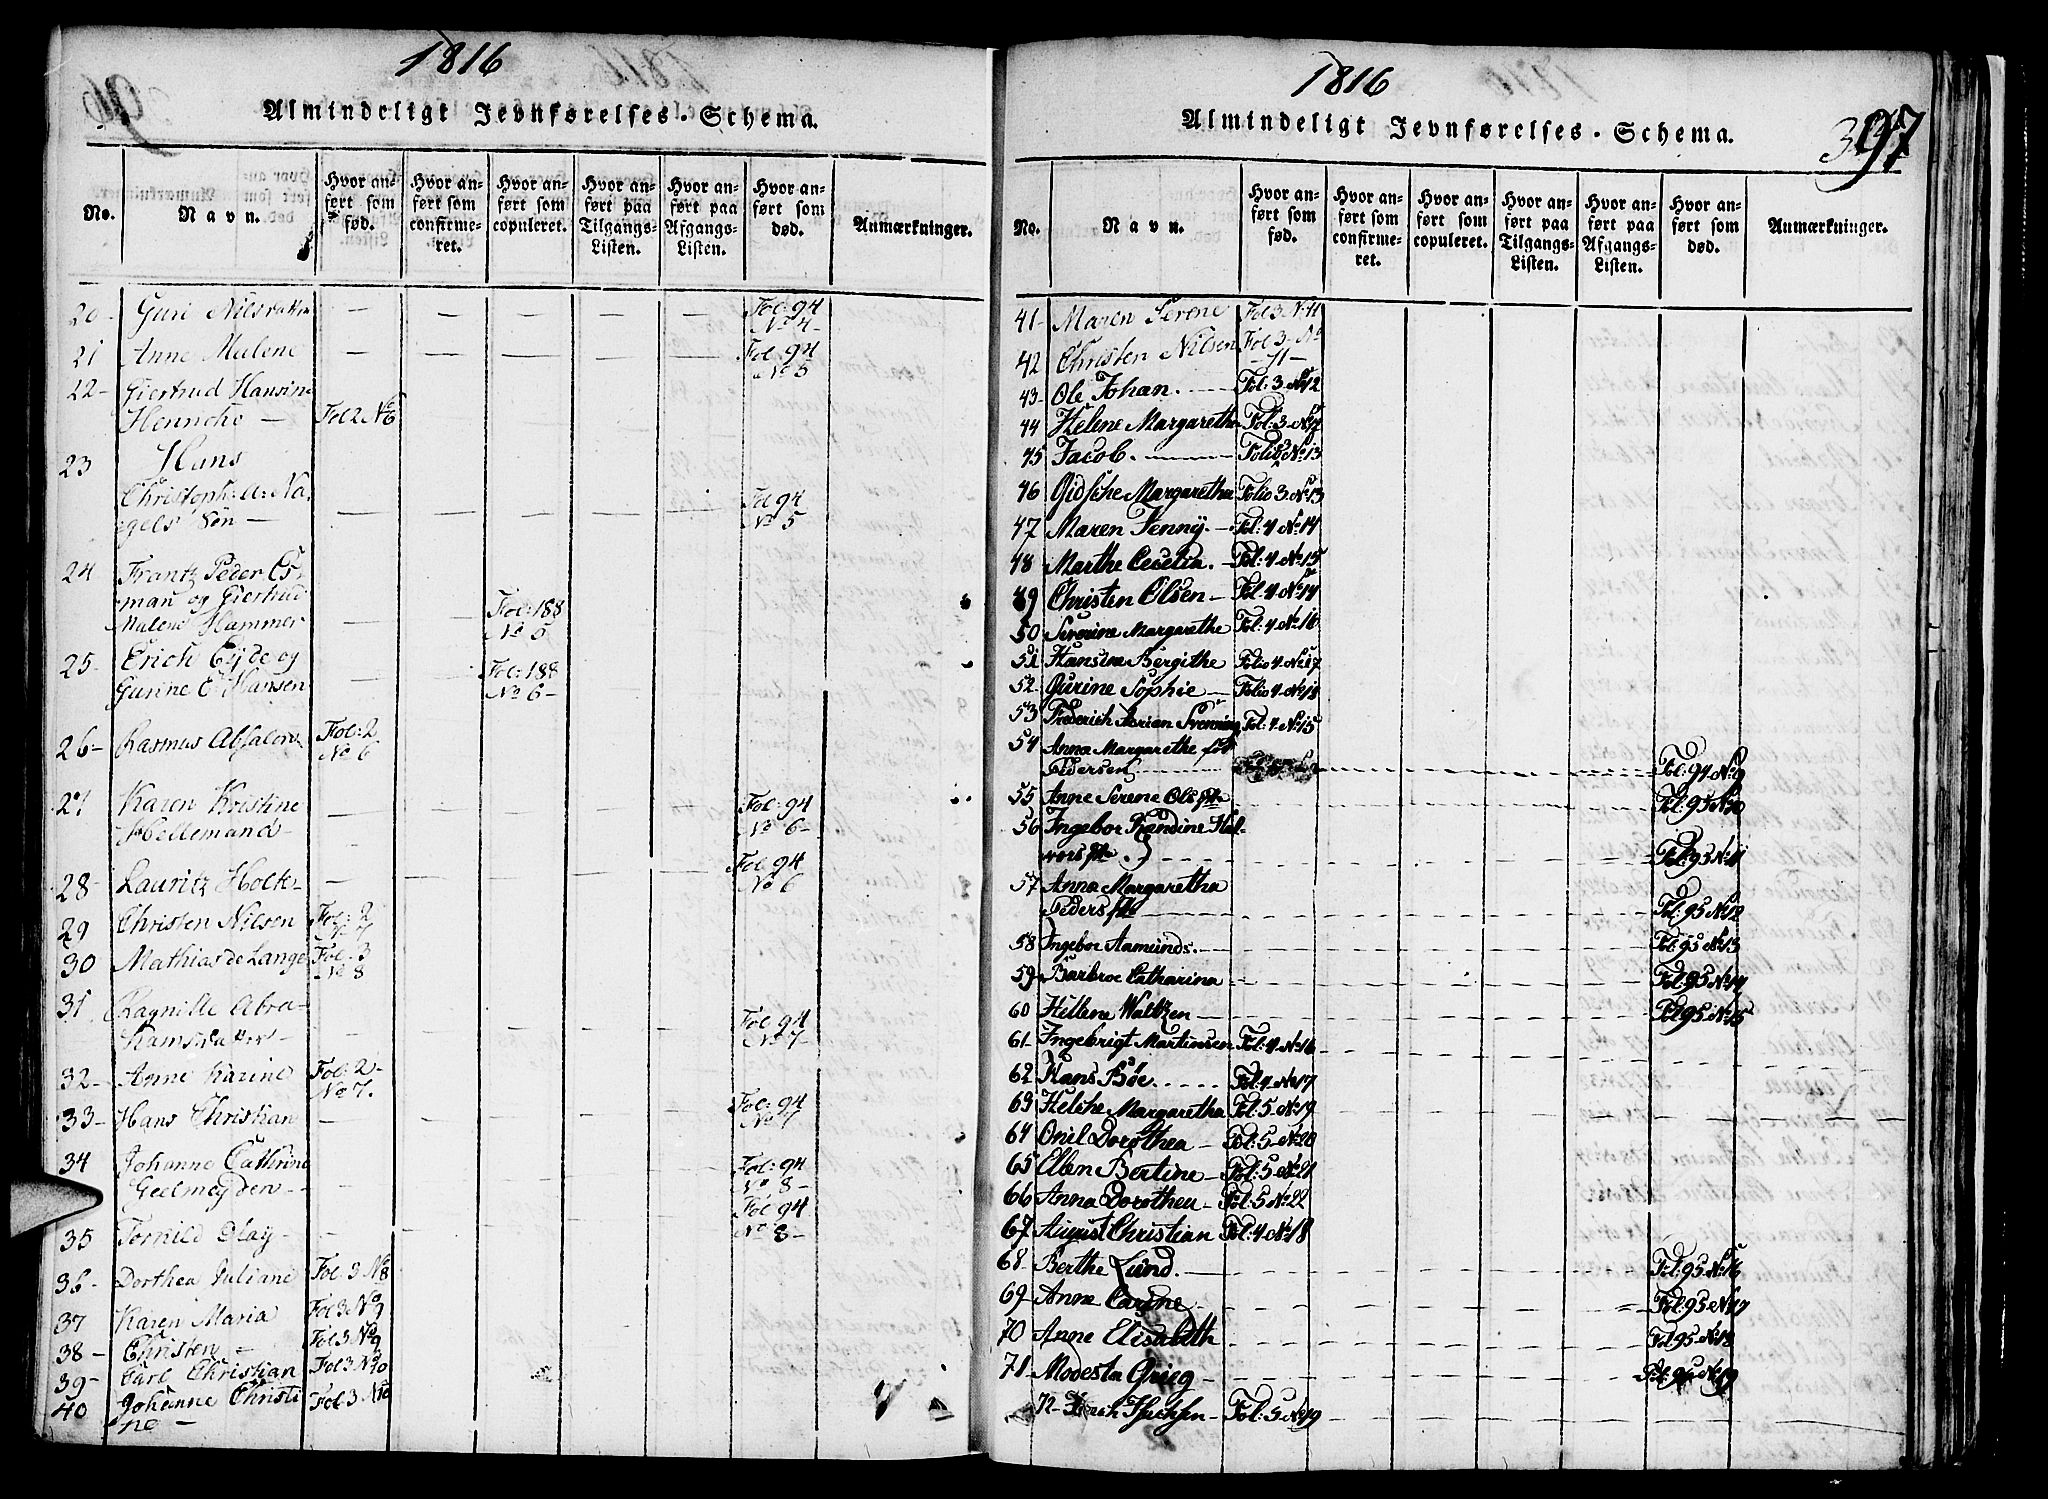 1816
Almindeligt Jevnførelses-Schema.
No.
Navn.
Hvor anført som fød.
Hvor anført som confirmeret.
Hvor anført som copuleret.
Hvor anført paa Tilgangs-Listen.
Hvor anført paa Afgangs-Listen.
Hvor anført som død.
Anmærkninger.
20- Guri Nilsdatter — — — — — Fol: 94 No 4-
21 Anne Malene — — — — — Fol. 94 No 5
22- Giertrud Hansine
Henriche — Fol 2 No 6
23 Hans
Christoph: a: Na,
gels Søn — — — — — — Fol 94 No 5
24 Frantz Peder Es-
man og Giertrud
Malene Hammer — — Fol: 188 No 5
25- Erich Eyde og
Gurine E. Hansen — — Fol: 188 No 6-
26- Rasmus Absalon Fol: 2 No 6
27 Karen Kristine
Hellemand — — — — — — Fol: 94 No 6-
28- Lauritz Holte- — — — — — Fol 94 No 6
29 Christen Nilsen Fol: 2 No 7
30 Mathias de Lange Fol. 3 No 8
31 Ragnille Abra-
hamsdatter — — — — — — Fol: 94 No 7-
32- Anne Karine Fol: 2- No 7.
33- Hans Christian — — — — — Fol: 94 No 7
34 Johanne Cathrine
Geelmeyden — — — — — — Fol: 94 No 8-
35 Tornild Olay — — — — — — Fol 94 No 8-
36- Dorthea Juliane Fol: 3 No 8
37 Karen Maria Fol 3 No 9
38- Christen — Fol 3 No 9
39- Carl Christian Fol 3 No 10
40 Johanne Christi
ne — Fol 3 No 10
1816
Almindeligt Jevnførelses-Schema.
97
No.
Navn.
Hvor anført som fød.
Hvor anført som confirmeret.
Hvor anført som copuleret.
Hvor anført paa Tilgangs-Listen.
Hvor anført paa Afgangs-Listen.
Hvor anført som død.
Anmærkninger.
41- Maren Serene Fol 3 No 11
42 Christen Nilsen Fol 3. No — 11 —
43- Ole Johan. — Fol: 3 No 12
44 Helene Margarethe Fol: 3 No
45 Jacob. — Folio 3 No 13
46 Gidsche Margaretha Folio 3 No 13
47- Maren Jenny. — Fol: 4 No 14
48 Marthe Cecelia. — Fol: 4 No 15
49 Christen Olsen — Fol. 4 No 14
50 Severine Margarethe Fol: 4 No 16
51 Hansine Bergithe Folio 4 No 17
52- Gurine Sophie — Folio 4 No 18
53 Frederich Adrian Svenning Fol: 4 No 15
54 Anna Margarethe født
Pedersen — — — — — — Fol: 94 No 9
55 Anne Serene Ols — Fol: 95 No 10
56 Ingebor Randine Hal-
vors — — — — — — Fol: 95 No 11
57 Anna Margaretha
Peders — — — — — — Fol: 95 No 12
58 Ingebor Aamunds. — — — — — — Fol 95 No 13
59- Barbroe Catharina — — — — — — Fol: 95 No 14
60 Hellene Waltzen — — — — — — Fol 95 No 15
61- Ingebrigt Martinsen Fol: 4 No 16
62 Hans Böe. — Fol: 4 No 17
63 Helche Margaretha Fol: 5 No 19
64 Onil Dorothea — Fol: 5 No 20
65 Ellen Bertine — Fol: 5 No 21
66 Anna Dorothea — Fol: 5 No 22
67 August Christian Fol: 4 No 18
68- Berthe Lund. — — — — — — Fol: 95 No 16
69- Anne Carine — — — — — — Fol: 95 No 17
70 Anne Elisabeth — — — — — — Fol 95 No 18
71- Modesta Grieg — — — — — — Fol: 95 No 19
72- Isachsen — Fol: 5 No 19